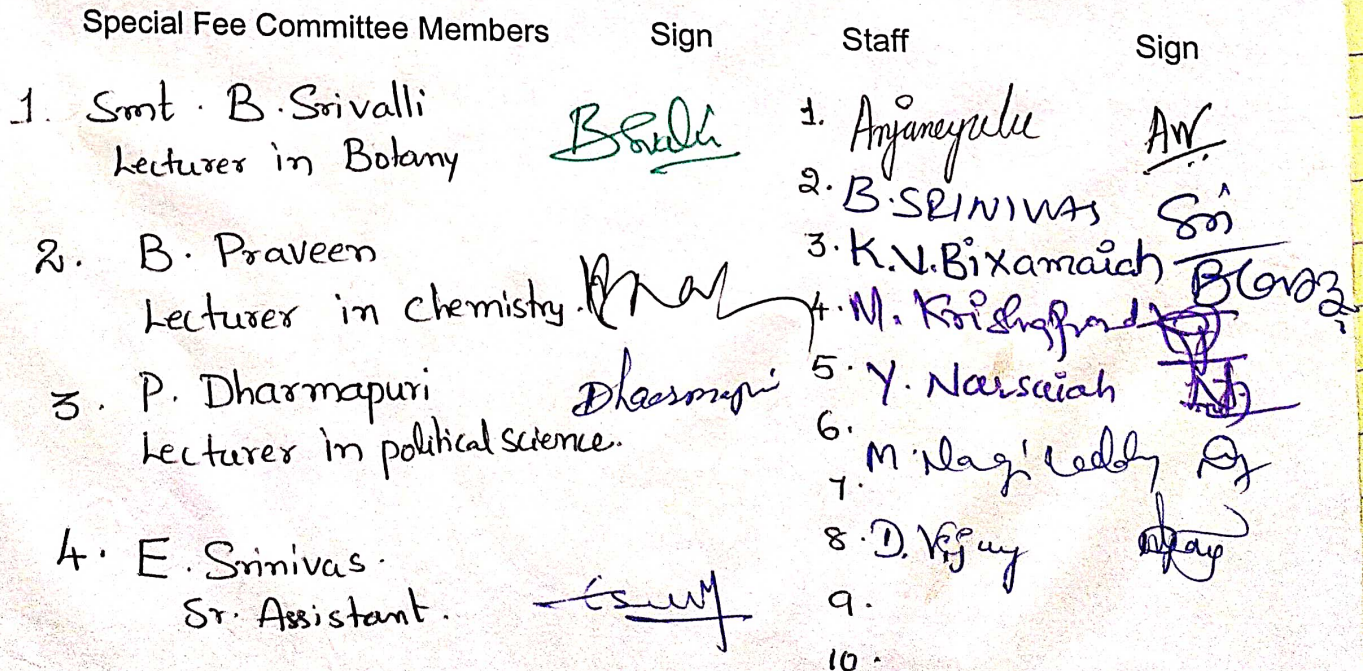 Special Fee Committee Members Sign Staff Sign
1. Smt. B. Srivalli
Lecturer in Botany
2. B. Praveen
Lecturer in chemistry.
3. P. Dharmapuri
Lecturer in political science.
4. E. Srinivas.
Sr. Assistant.
1. Anjaneyulu
2. B. SRINIVAS Sri
3. K.V. Bixamaiah
4. M. Krishna
5. Y. Narsaiah
6.
M. Nagi reddy
7.
8. D. Vijay
9.
10.